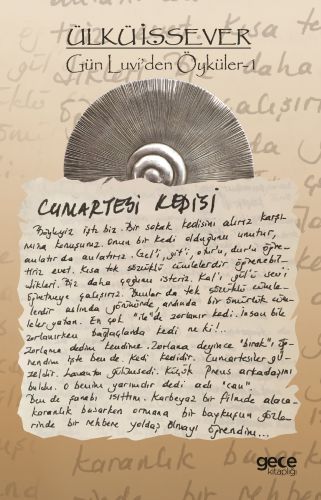 ÜLKÜ İSSEVER
Gün Luvi'den Öyküler-1
CUMARTESİ KEDİSİ
Böyleyiz işte biz. Bir sokak kedisini alırız karşı-
mıza konuşuruz. Onun bir kedi olduğunu unutur,
anlatır da anlatırız. Gel'i, git'i, otur'u, dur'u öğre-
tiriz evet. Kısa tek sözcüklü cümlelerdir öğrenebil-
dikleri. Biz daha çoğunu isteriz. Kal'ı gül'ü sev'i
öğretmeye çalışırız. Bunlar da tek sözcüklü cümle-
lerdir aslında görünürde ardında bir ömürlük cüm-
leler yatan. En çok "ile"de zorlanır kedi. İnsan bile
zorlanırken bağlaçlarda kedi ne ki!..
Zorlama dedim kendime. Zorlama deyince "bırak"ı öğ-
rendim işte ben de. Kedi kedidir. Cumartesiler gü-
zeldir. Lavanta gülümsedi. Küçük Prens arkadaşını
buldu. O benim yarımdır dedi adı "can".
Ben de sanatı ısıttım. Karbeyaz bir filmde alaca-
karanlık basarken ormana bir baykuşun gözle-
rinde bir rehbere yoldaş olmayı öğrendim...
karanlık basarken
gece
kitaplığı